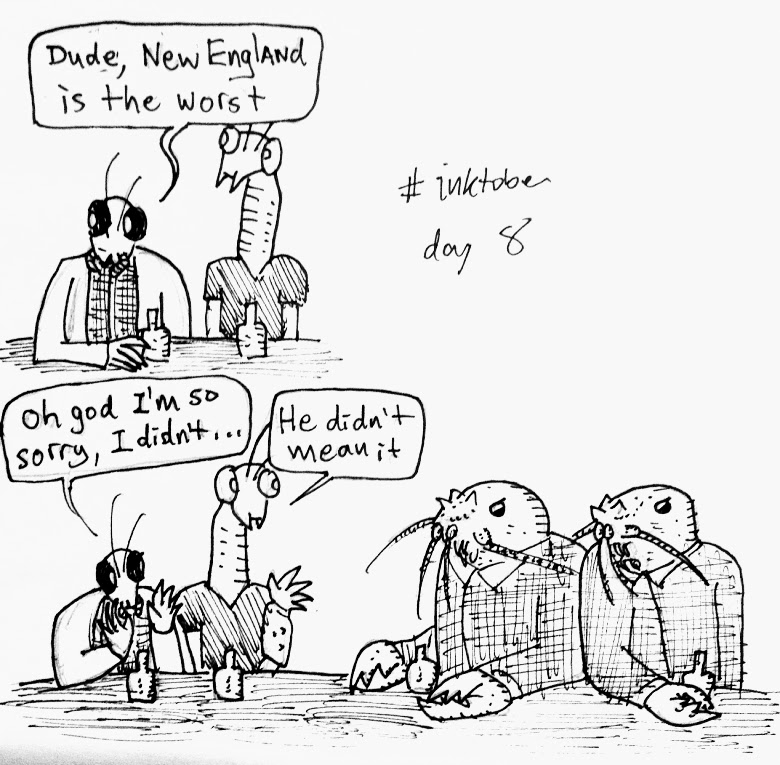 Dude, New England
is the worst
# inktober
day 8
Oh god I'm so
sorry, I didn't...
He didn't
mean it